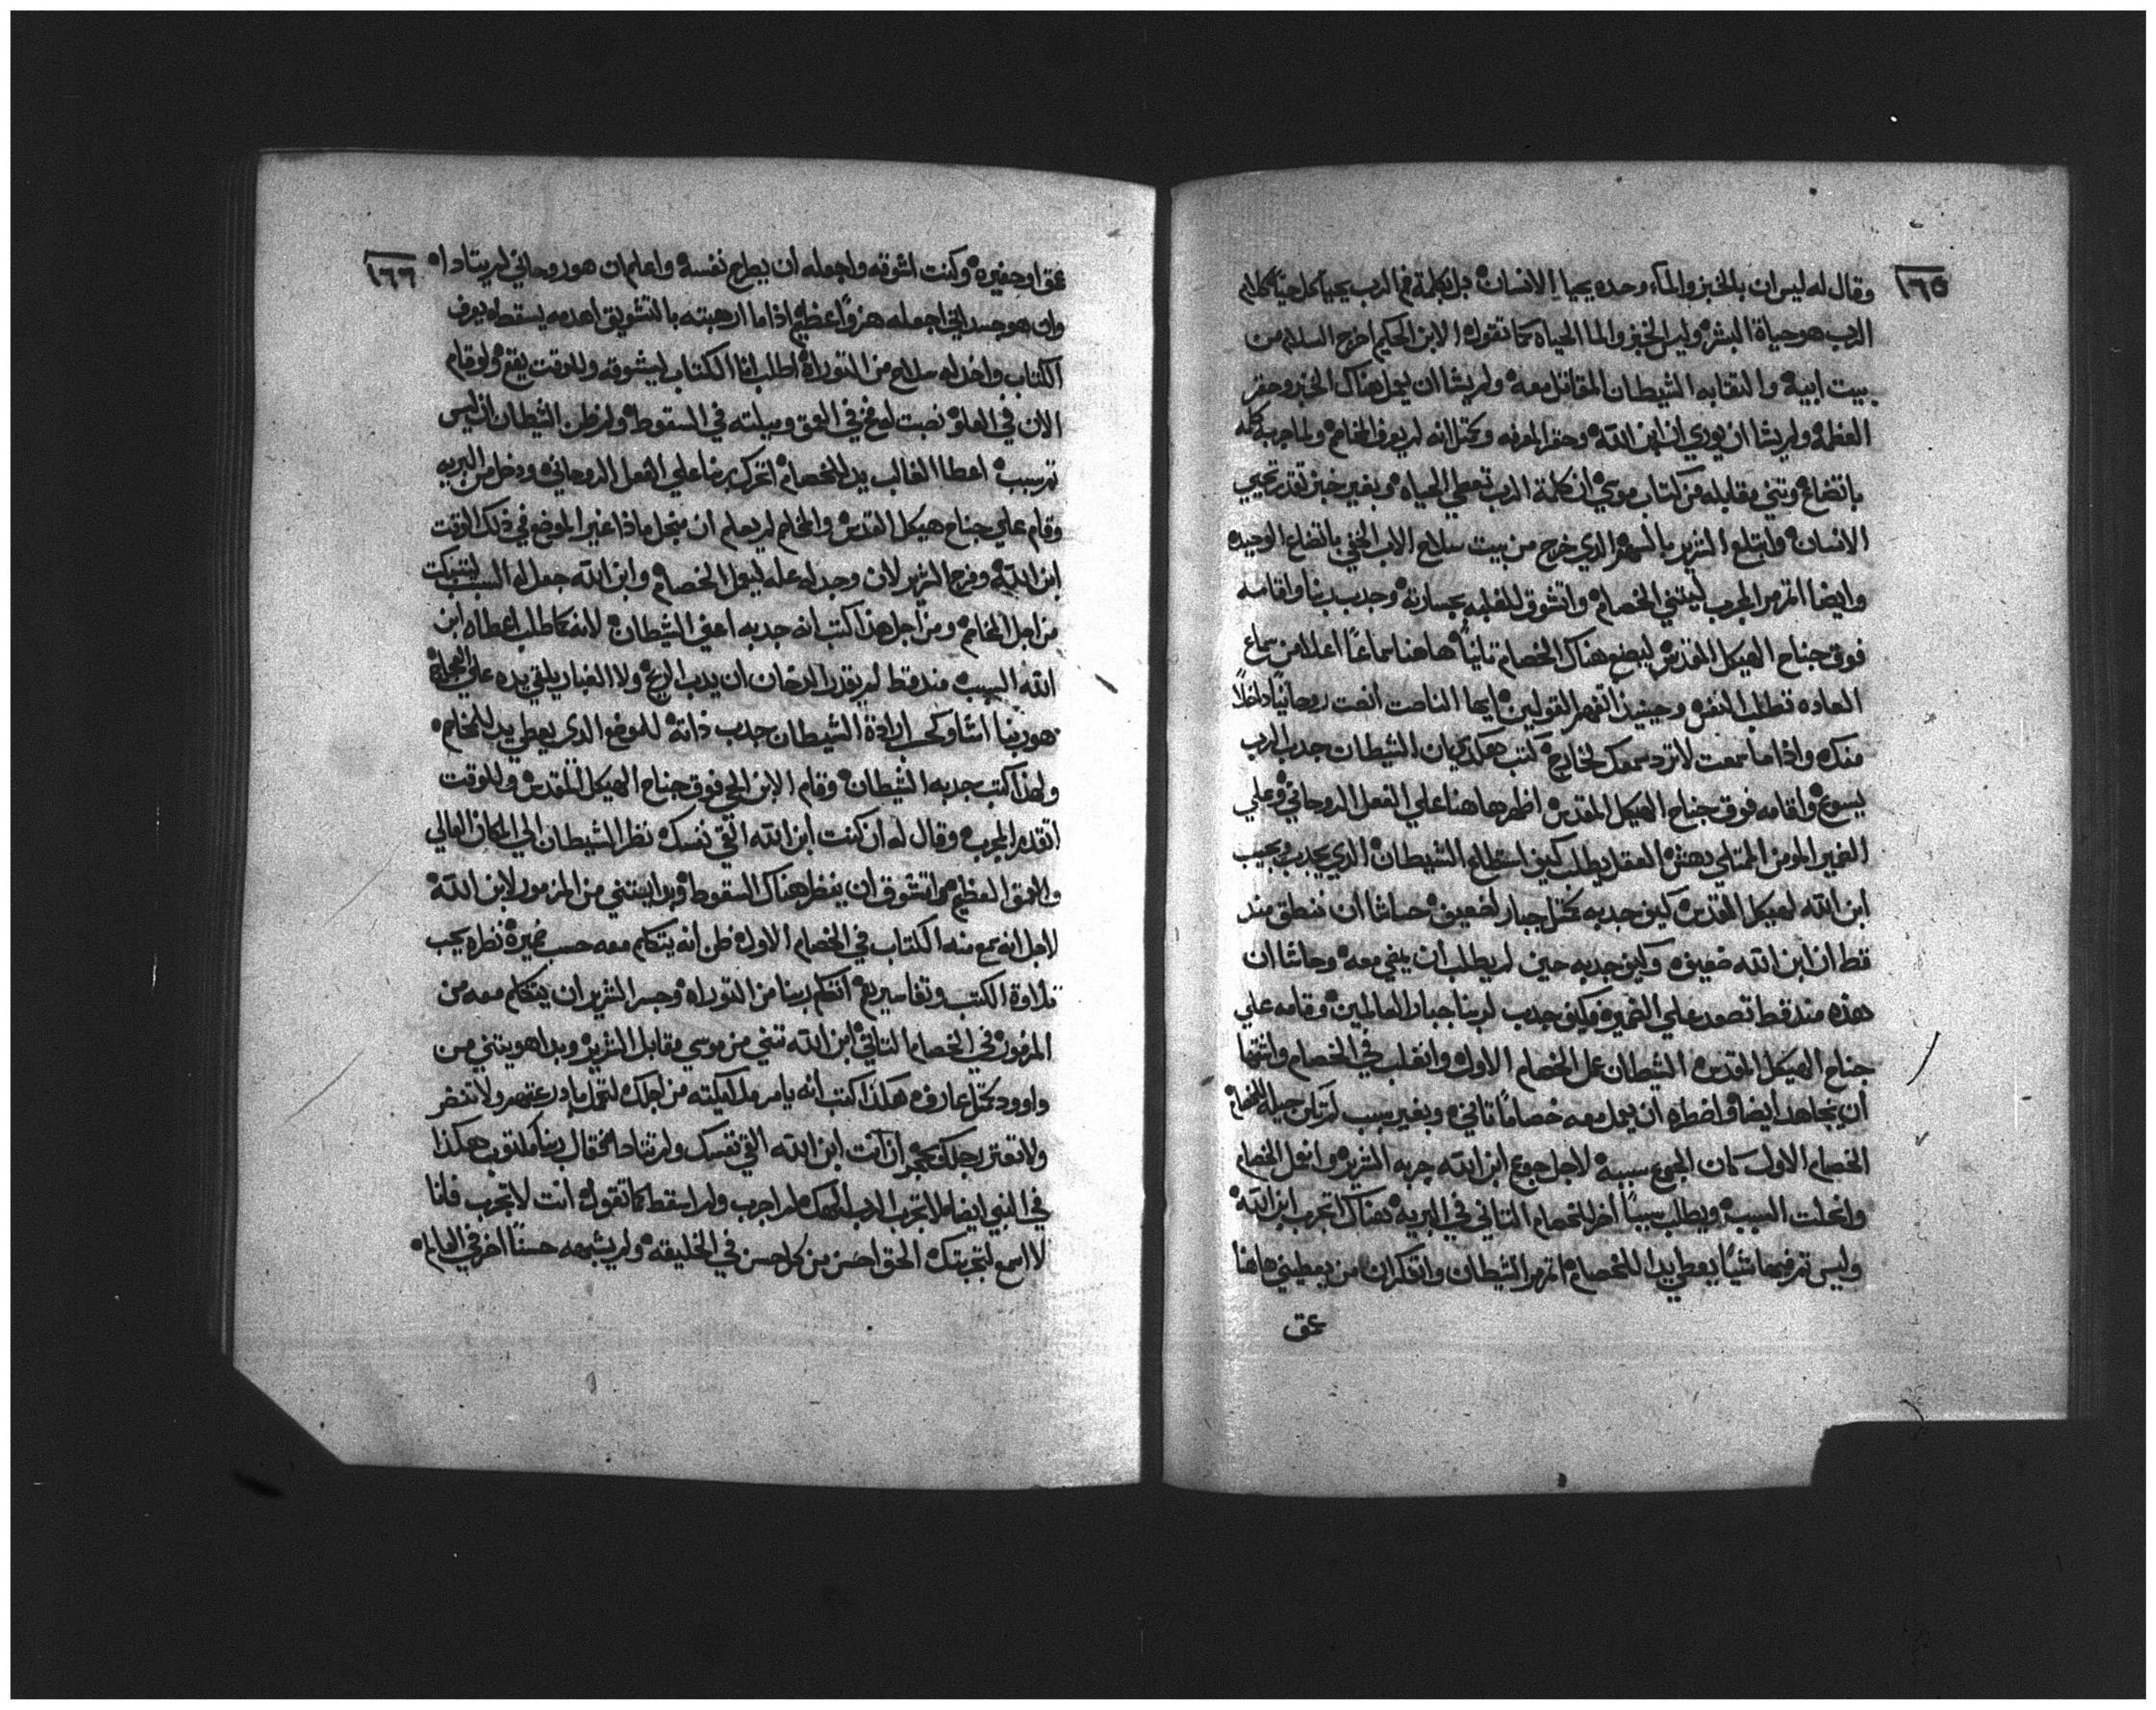 ١٦٥
وقال له ليس ان بالخبز والماء وحده يحيا الانسان بل بكلمة فم الرب يحيا كل حي كلام
الرب هو حياة البشر وليس الخبز والما الحياه كما تقول الابن الحكيم اخرج السلاح من
بيت ابيه والتقا به الشيطان المقاتل معه ولم يشا ان يعمل هناك الخبز وحقر
العظمه ولم يشا ان يوري انه ابن الله وحقر المعرفه وكمثل انه لم يعرف المخاصم ولما جربه كله
باتضاع وتني مقابله من كتاب موسي ان كلمة الرب تعطي الحياه وبغير خبز تقدر تحيي
الانسان وابتلع الشرير بالسهم الذي خرج من بيت سلاح الاب الخفي باتضاع الوحيد
وايضا اتقدم المجرب ليتني الخصام واتشوق للغلبه بجساره وجدب ربنا واقامه
فوق جناح الهيكل المقدس ليصنع هناك الخصام تانياً هاهنا سماعاً اعلا من سماع
العاده تطلب النفس وحينيذ اتفهم القولين ايها الناصت انصت روحانياً داخلاً
منك واذا ما سمعت لا ترد سمعك لخارج كتب هكدي ان الشيطان جدب الرب
يسوع واقامه فوق جناح الهيكل المقدس اظهر هاهنا علي الفعل الروحاني وعلي
الضمير المومن الممتلي دهش العقل يطلب كيف استطاع الشيطان الذي يجدب ويجيب
ابن الله لهيكل القدس كيف جدبه كمثل جبار لضعيف حاشا ان ننطق مند
قط ان ابن الله ضعيف وكيف جدبه حين لم يطلب ان يمضي معه وحاشا ان
هذه مند قط تصعد علي الضمير فكيف جدب لربنا جبار العالمين وقامه علي
جناح الهيكل المقدس الشيطان عمل الخصام الاول واتغلب في الخصام واشتها
ان يجاهد ايضا واضطره ان يعمل معه خصاماً تاني وبغير سبب لم تكن حيله للخصام
الخصام الاول كان الجوع سببه لاجل جوع ابن الله جربه الشرير وانحل الخصام
وانحلت السبب ويطلب سبباً اخر للخصام التاني في البريه هناك اتجرب ابن الله
وليس تم فيها شياً يعطي يدا للخصام اتقدم الشيطان واتفكر ان من يعطيني هاهنا
عمق
١٦٦
عمق او حفيره وكنت اشوقه واجعله ان يطرح نفسه واعلم ان هو روحاني لم يتادا
وان هو جسداني اجعله هزواً عظيم اذا ما ارهبته بالتشويق اهدمه يسقط يعرف
الكتاب واخد له سلاح من التوراة اطلب انا الكتاب ليشوقه وللوقت يقع ولو قام
الان في العلو نصبت له فخ في العمق وميلته في السقوط ولم ظن الشيطان ان ليس
تم سبب اعطا الغالب يد للخصام اتحرك ربنا علي الفعل الروحاني ودخل من البريه
وقام علي جناح هيكل القدس والمخاصم لم يعلم ان من اجل ماذا غير الموضع في ذلك الوقت
ابن الله وفرح الشرير لان وجد له عله ليعمل الخصام وابن الله جعل له السبب ليتبكت
من اجل المخاصم ومن اجل هذا كتب انه جدبه اعني الشيطان لانه كما طلب اعطاه ابن
الله السبب مند قط لم يقدر الدخان ان يدب الريح ولا الغبار يلقي يده علي العجاج
هو ربنا اشا وكحسب ارادة الشيطان جدب ذاته للموضع الذي يعطي يد للخاصم
ولهذا كتب جدبه الشيطان وقام الابن الحي فوق جناح الهيكل المقدس وللوقت
اتقدم المجرب وقال له ان كنت ابن الله القي نفسك نظر الشيطان الي المكان العالي
والعمق العظيم واتشوق ان ينظر هناك السقوط وبدا يتني من المزمور لابن الله
لاجل انه سمع منه الكتاب في الخصام الاول ظن انه يتكلم معه حسب ضميره نظره يحب
تلاوة الكتب وتفاسيرهم اتكلم ربنا من التوراه وجسر الشرير ان يتكلم معه من
المزمور في الخصام التاني ابن الله تني من موسي مقابل الشرير وبدا هو يتني من
داوود كمثل عارف هكذا كتب انه يامر ملايكته من اجلك لتحمل بادرعتهم ولا تتضر
ولا تعتر رجلك بحجر ان انت ابن الله القي نفسك ولم تتادا فقال ربنا مكتوب هكذا
في النبي ايضا لا تجرب الرب الهك لم اجرب ولم اسقط كما تقول انت لا تجرب فانا
لا اسمع لتجربتك الحق احسن من كل حسن في الخليقه ولم يشبهه حسناً اخر في العالم